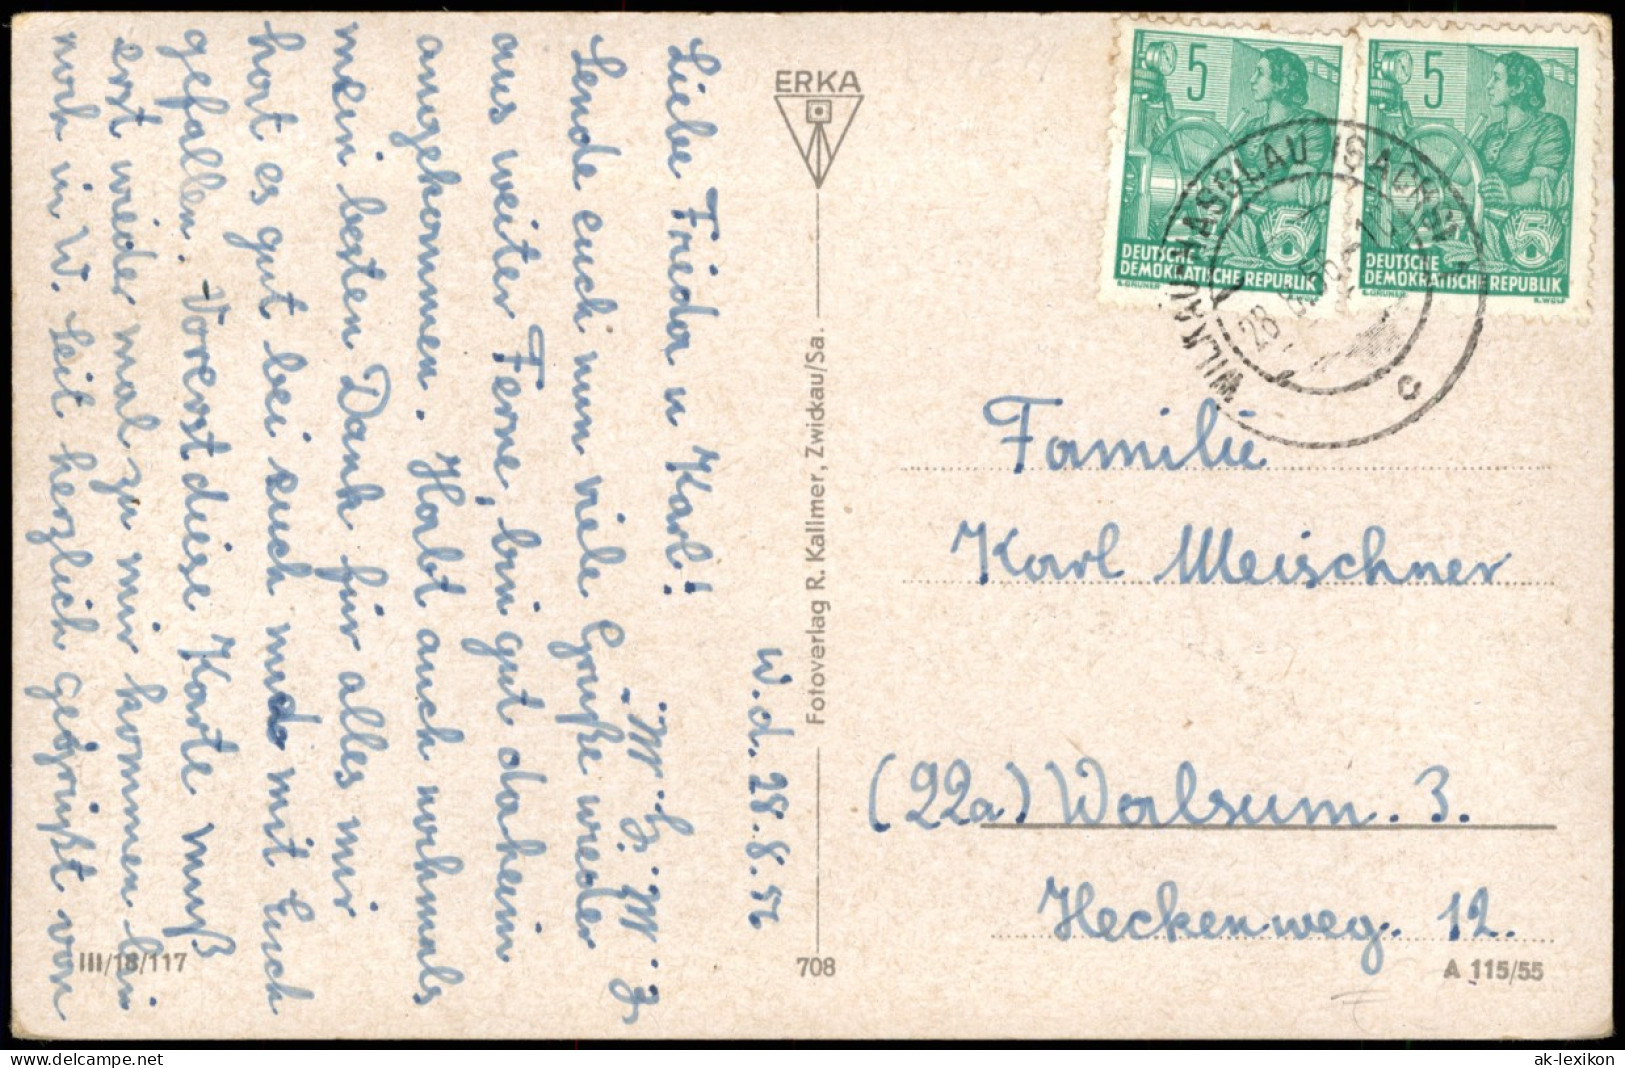 W. d. 28.8.56
Liebe Frieda u Karl!
Sende euch nun viele Grüße wieder
aus weiter Ferne, bin gut daheim
angekommen. Habt auch nochmals
mein besten Dank für alles mir
hat es gut bei euch und mit Euch
gefallen. Vorerst diese Karte muß
erst wieder mal zu mir kommen bin
noch in W. Seit herzlich gegrüßt von
ERKA
Fotoverlag R. Kallmer, Zwickau/Sa.
III/18/117
708
A 115/55
5
5
DEUTSCHE
DEMOKRATISCHE REPUBLIK
E.GRUNER
R.WOLF
5
5
DEUTSCHE
DEMOKRATISCHE REPUBLIK
E.GRUNER
R.WOLF
WILKAU-HASSLAU (SACHS) 1
28.8.
c
Familie
Karl Meischner
(22a) Walsum. 3.
Heckenweg. 12.
ak-lexikon.de
ak-lexikon